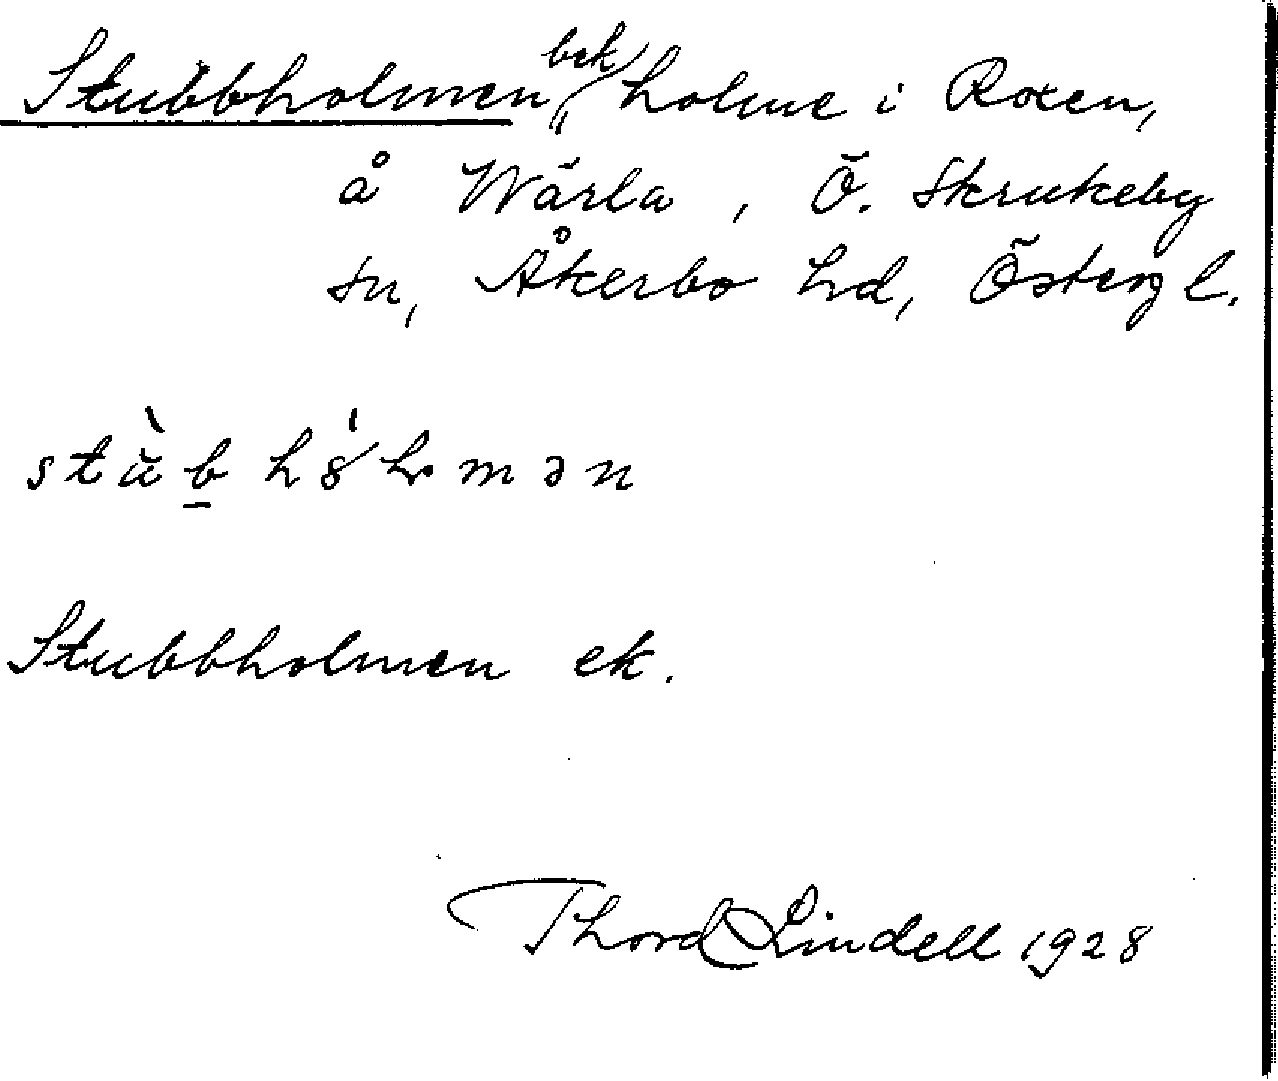 Stubbholmen, bek. holme i Roxen,
å Wärla, Ö. Skrukeby
sn, Åkerbo hd, Östergl.
Stubbholmen ek.
Thord Lindell 1928